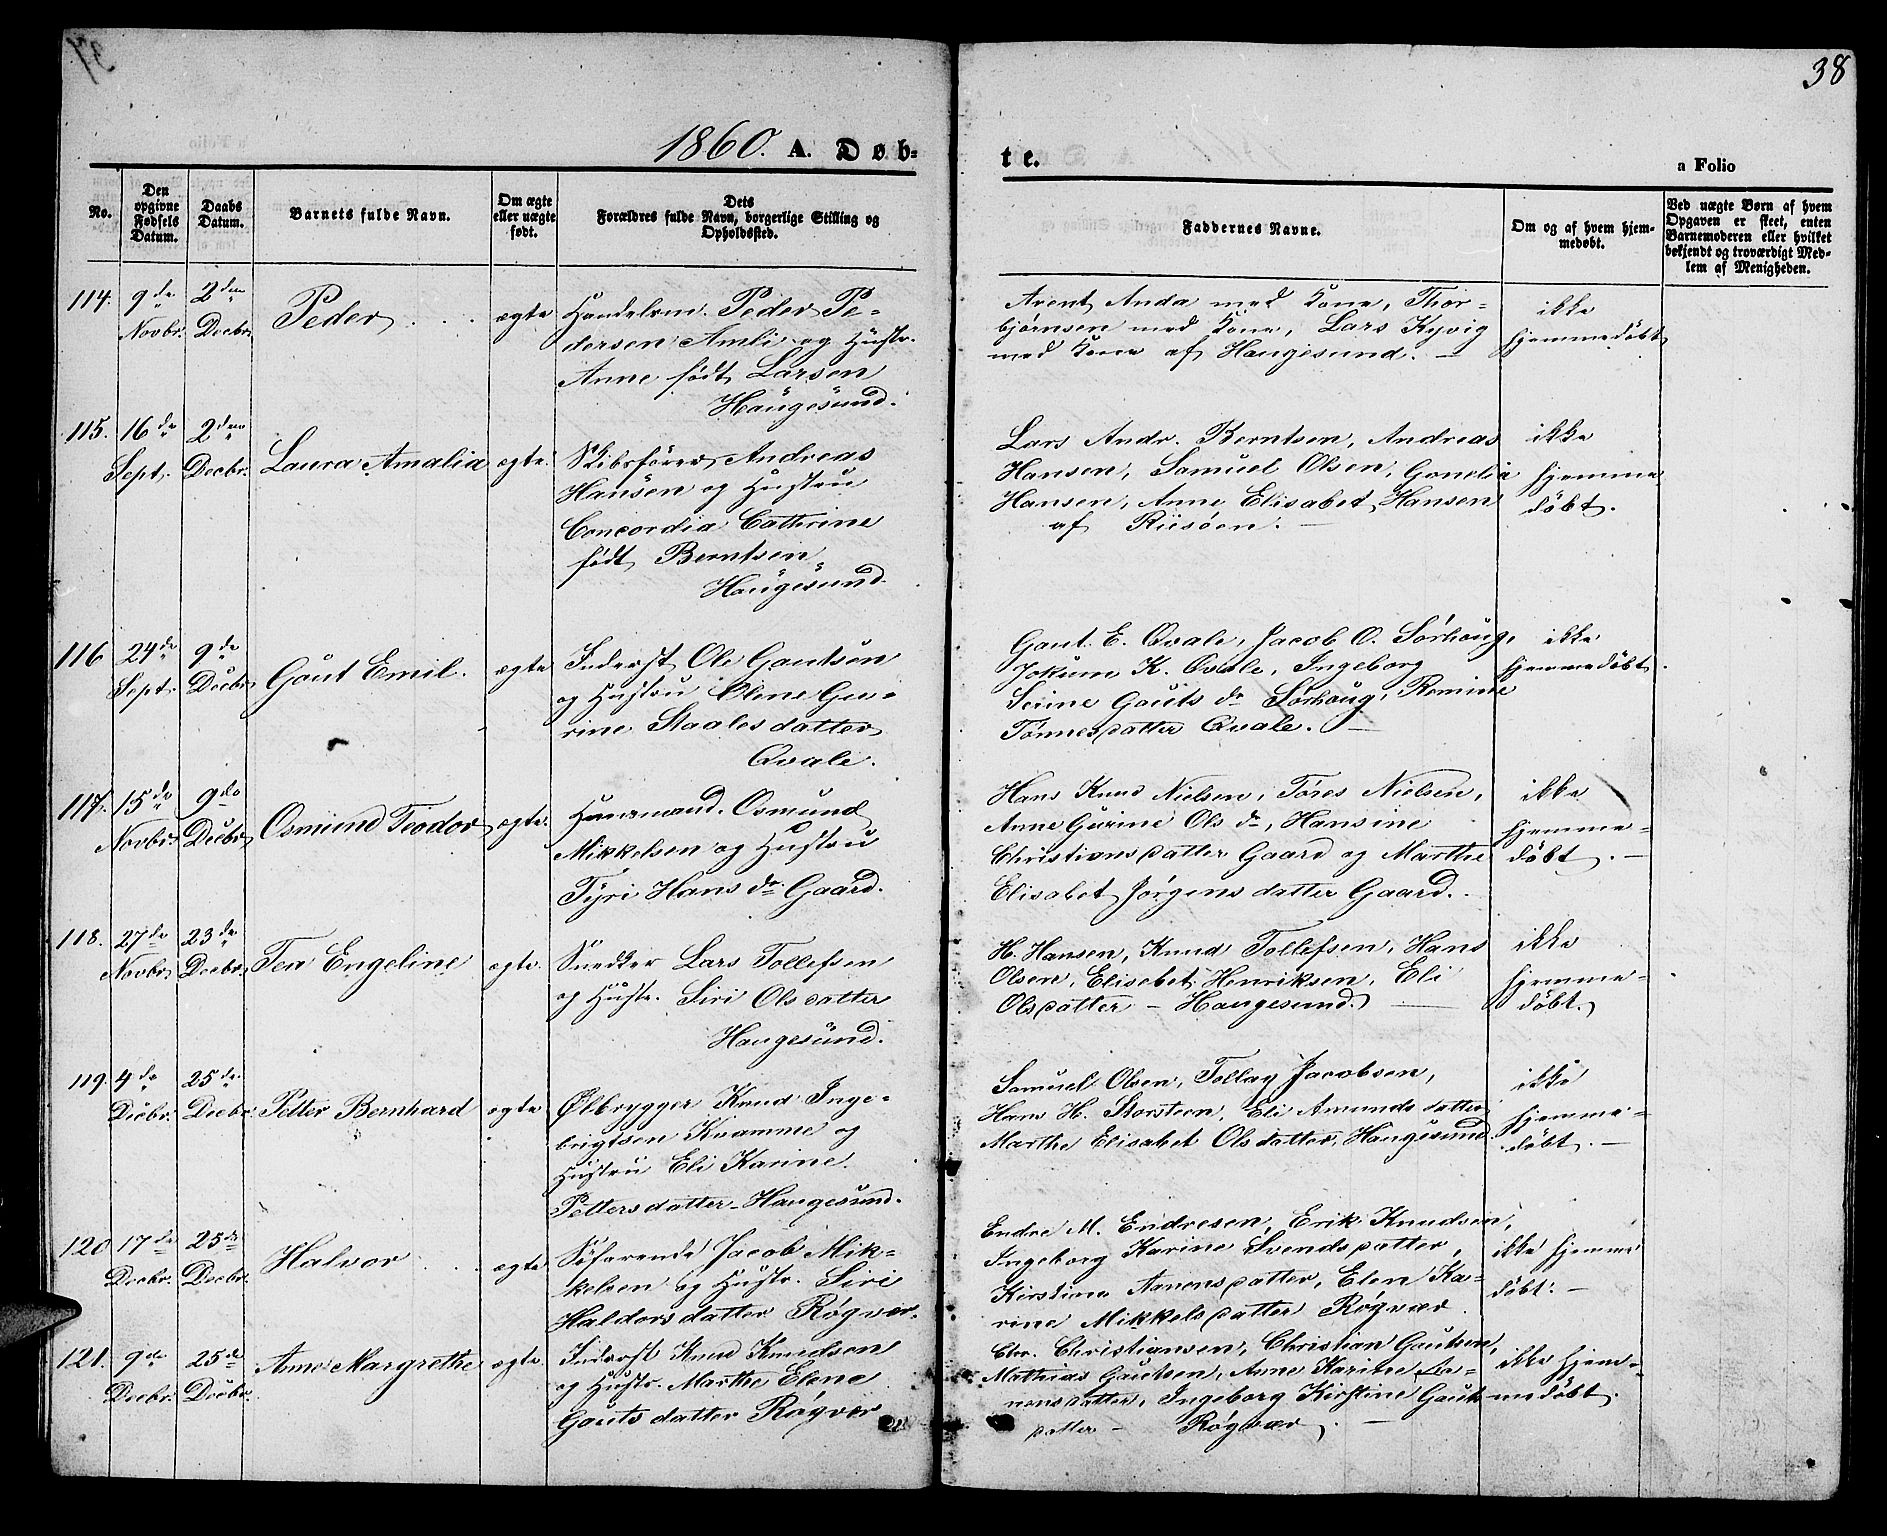 38
1860. A. Døb-
te.
a Folio
No.
Den opgivne Fødsels Datum.
Daabs Datum.
Barnets fulde Navn.
Om ægte eller uægte født.
Dets Forældres fulde Navn, borgerlige Stilling og Opholdssted.
Faddernes Navne.
Om og af hvem hjemmedøbt.
Ved uægte Børn af hvem Opgaven er skeet, enten Barnemoderen eller hvilket bekjendt og troværdigt Medlem af Menigheden.
114. 9de Novbr. 2den Decbr. Peder ægte
Handelsm. Peder Pe-
dersen Amli og Hustr.
Anne født Larsen
Haugesund.
Arent Anda med Kone, Thor-
bjørnsen med Kone, Lars Kyvig
med Kone af Haugesund.
ikke
hjemmedøbt
115. 16de Sept. 2den Decbr. Laura Amalia ægte.
Skibsfører Andreas
Hansen og Hustru
Concordia Cathrine
født Berntsen
Haugesund.
Lars Andr. Berntsen, Andreas
Hansen, Samuel Olsen, Gonelia
Hansen, Anne Elisabet Hansen
af Riisøen.
ikke
hjemme
døbt.
116 24de Sept. 9de Decbr. Gaut Emil. ægte
Inderst Ole Gautsen
og Hustru Oline Gu-
rine Staalesdatter
Qvale.
Gaut E. Qvale, Jacob O. Sørhaug,
Jokum K. Qvale, Ingeborg
Serine Gauts dr Sørhaug, Romine
Tønnesdatter Qvale.
ikke
hjemmedøbt.
117. 15de Novbr. 9de Decbr. Osmund Teodor ægte.
Huusmand Osmund
Mikkelsen og Hustru
Tyri Hans dr Gaard.
Hans Knud Nielsen, Tøres Nielsen,
Anne Gurine Ols dr, Hansine
Christiansdatter Gaard og Marthe
Elisabet Jørgensdatter Gaard.
ikke
hjemme-
døbt.
118. 27de Novbr. 23de Decbr. Tea Engeline ægte.
Snedker Lars Tollefsen
og Hustr. Siri Olsdatter
Haugesund.
H. Hansen, Knud Tollefsen, Hans
Olsen, Elisabet Henriksen, Eli
Olsdatter - Haugesund.
ikke
hjemme-
døbt.
119. 4de Decbr. 25de Decbr. Petter Bernhard ægte
Ølbrygger Knud Inge-
brigtsen Kvamme og
Hustru Eli Karine
Pettersdatter - Haugesund.
Samuel Olsen, Tollag Jacobsen,
Hans H. Storsteen, Eli Amundsdatter
Marthe Elisabet Olsdatter, Haugesund
ikke
hjemme-
døbt.
120 17de Decbr. 25de Decbr. Halvor ægte
Søfarende Jacob Mik-
kelsen og Hustr. Siri
Haldorsdatter Røgvær.
Endre M. Endresen, Erik Knudsen,
Ingeborg Karine Svendsdatter,
Kirstine Aanensdatter, Elen Ka-
rine Mikkelsdatter Røgvær.
ikke hjemme
døbt.
121. 9de Decbr. 25de Decbr. Anne Margrethe ægte.
Inderst Knud Knudsen
og Hustr. Marthe Elene
Gautsdatter Røgvær
Chr. Christiansen, Christian Gautsen,
Mathias Gautsen, Anne Karine Aa-
nensdatter, Ingeborg Kirstine Gauts
datter - Røgvær.
ikke hjem-
medøbt.